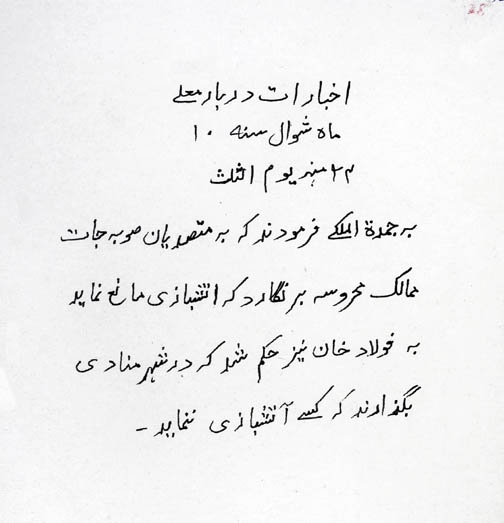 28
اخبارات دربار معلے
ماه شوال سنه ۱۰
۲۴ منه یوم الثلث
به جمدة الملکے فرمودند که به متصدیان صوبه جات
ممالک محروسه بر نگارد که اتشبازی مانع نماید
به فولاد خان نیز حکم شد که در شهر منادی
بگذارند که کسے آتشبازی ننماید -